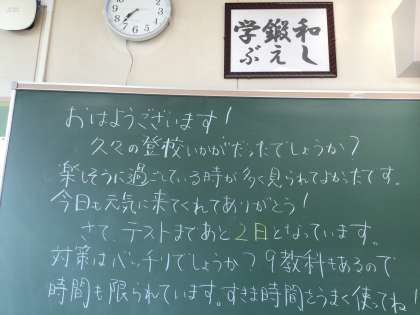 和し
鍛え
学ぶ
おはようございます!
久々の登校いかがだったでしょうか?
楽しそうに過ごしている時が多く見られてよかったです。
今日も元気に来てくれてありがとう!
さて、テストまであと2日となっています。
対策はバッチリでしょうか?9教科もあるので
時間も限られています。すきま時間をうまく使ってね!